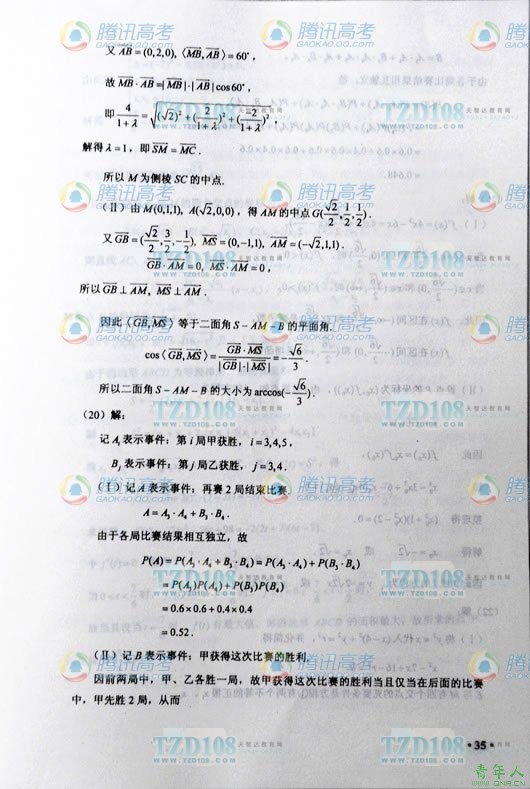 又 $\overrightarrow{AB}=(0,2,0)$, $\langle\overrightarrow{MB},\overrightarrow{AB}\rangle=60°$,
故 $\overrightarrow{MB}\cdot\overrightarrow{AB}=|\overrightarrow{MB}|\cdot|\overrightarrow{AB}|\cos60°$,
即 $\frac{4}{1+\lambda}=\sqrt{(\sqrt{2})^2+(\frac{2}{1+\lambda})^2+(\frac{2}{1+\lambda})^2}$,
解得 λ=1, 即 $\overrightarrow{SM}=\overrightarrow{MC}$.
所以 M 为侧棱 SC 的中点.
(Ⅱ) 由 $M(0,1,1)$, $A(\sqrt{2},0,0)$, 得 AM 的中点 $G(\frac{\sqrt{2}}{2},\frac{1}{2},\frac{1}{2})$.
又 $\overrightarrow{GB}=(\frac{\sqrt{2}}{2},\frac{3}{2},-\frac{1}{2})$, $\overrightarrow{MS}=(0,-1,1)$, $\overrightarrow{AM}=(-\sqrt{2},1,1)$.
$\overrightarrow{GB}\cdot\overrightarrow{AM}=0$, $\overrightarrow{MS}\cdot\overrightarrow{AM}=0$,
所以 $\overrightarrow{GB}\perp\overrightarrow{AM}$, $\overrightarrow{MS}\perp\overrightarrow{AM}$.
因此 $\langle\overrightarrow{GB},\overrightarrow{MS}\rangle$ 等于二面角 S－AM－B 的平面角.
$\cos\langle\overrightarrow{GB},\overrightarrow{MS}\rangle=\frac{\overrightarrow{GB}\cdot\overrightarrow{MS}}{|\overrightarrow{GB}|\cdot|\overrightarrow{MS}|}=-\frac{\sqrt{6}}{3}$.
所以二面角 S－AM－B 的大小为 $\arccos(-\frac{\sqrt{6}}{3})$.
(20) 解:
记 $A_i$ 表示事件: 第 i 局甲获胜, i=3,4,5,
$B_j$ 表示事件: 第 j 局乙获胜, j=3,4.
(Ⅰ) 记 A 表示事件: 再赛 2 局结束比赛.
$A=A_3\cdot A_4+B_3\cdot B_4$.
由于各局比赛结果相互独立, 故
$P(A)=P(A_3\cdot A_4+B_3\cdot B_4)=P(A_3\cdot A_4)+P(B_3\cdot B_4)$
$=P(A_3)P(A_4)+P(B_3)P(B_4)$
=0.6×0.6+0.4×0.4
=0.52.
(Ⅱ) 记 B 表示事件: 甲获得这次比赛的胜利.
因前两局中, 甲、乙各胜一局, 故甲获得这次比赛的胜利当且仅当在后面的比赛
中, 甲先胜 2 局, 从而
·35·
腾讯高考
GAOKAO.QQ.COM
TZD108 天智达教育网
WWW.TZD108.COM
青年人
www.QNR.CN